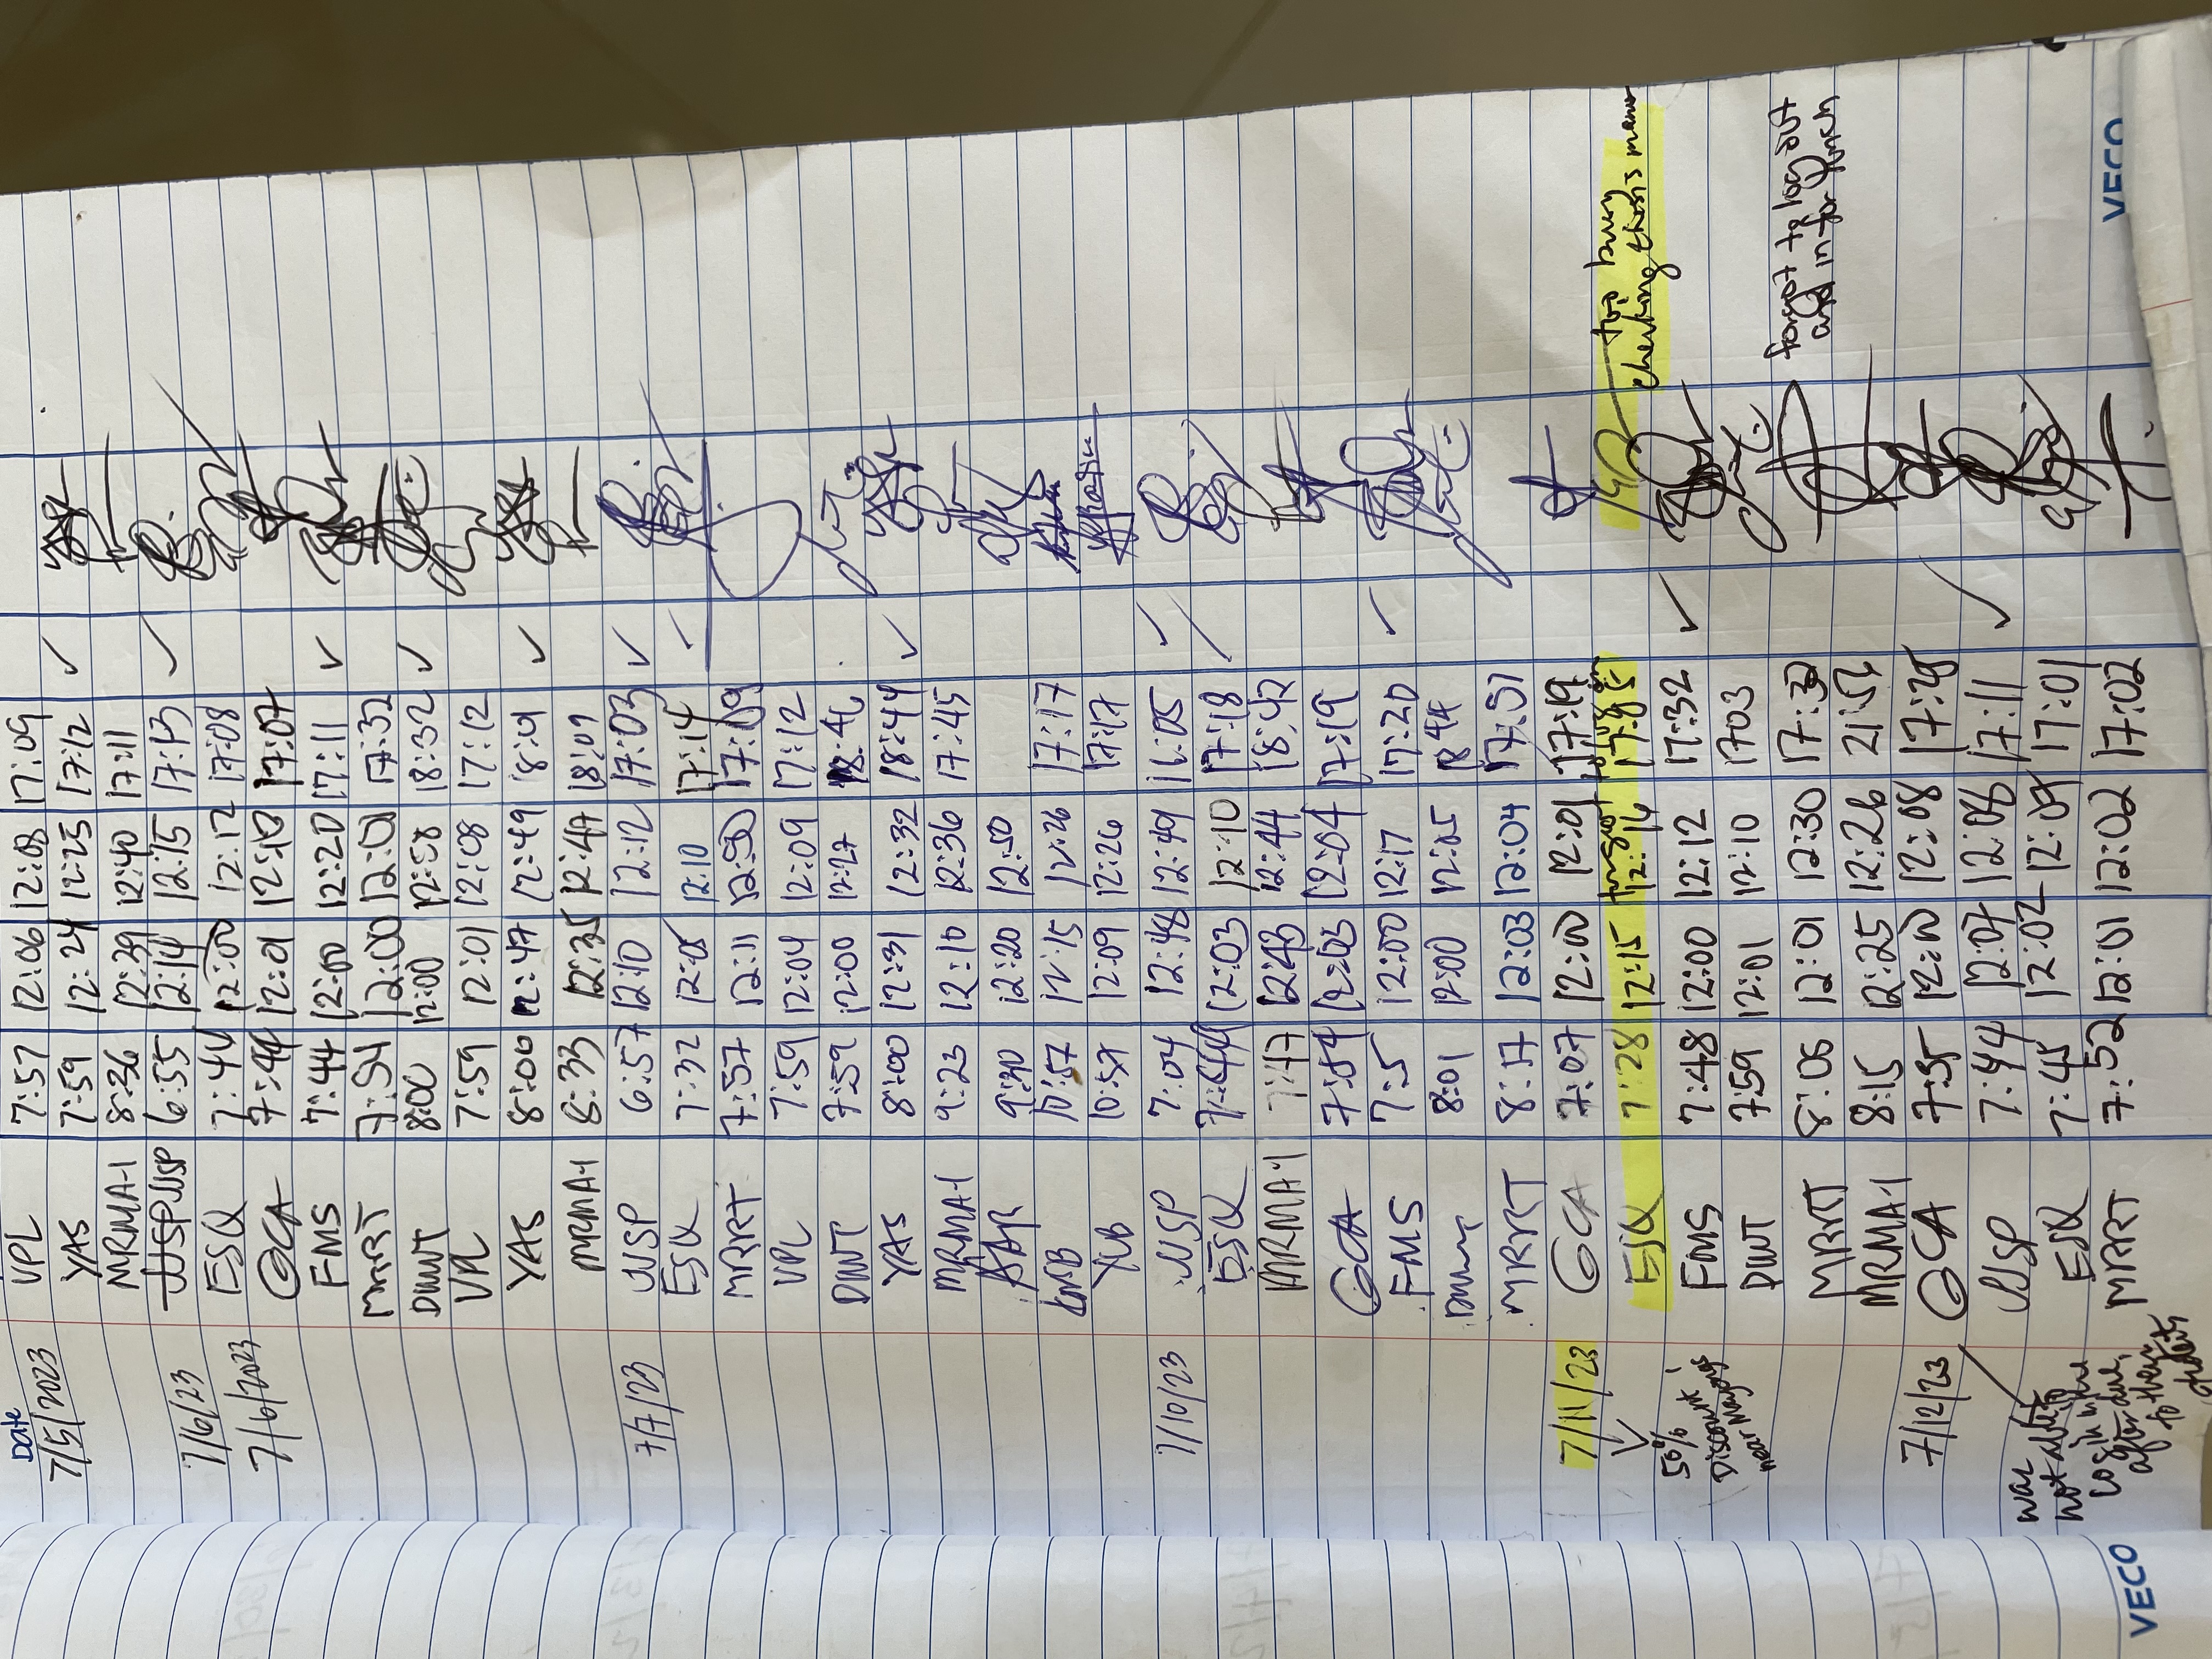 Date
VPL 7:57 12:06 12:08 17:09
7/5/2023 YAS 7:59 12:24 12:25 17:12
MRMA-1 8:36 12:39 12:40 17:11
JJSP JJSP 6:55 12:14 12:15 17:13
7/6/23 ESQ 7:44 12:00 12:12 17:08
7/6/2023 GCA 7:44 12:01 12:10 17:07
FMS 7:44 12:00 12:20 17:11
MRRT 7:54 12:00 12:01 17:32
DWWT 8:00 12:00 12:58 18:32
VPL 7:59 12:01 12:08 17:12
YAS 8:00 12:47 12:49 18:01
MRMA-1 8:33 12:35 12:47 18:09
7/7/23 JJSP 6:57 12:10 12:12 17:03
ESQ 7:32 12:08 12:10 17:14
MRRT 7:57 12:11 12:50 17:09
VPL 7:59 12:04 12:09 17:12
DWWT 7:59 12:00 12:27 18:46
YAS 8:00 12:31 12:32 18:49
MRMA-1 9:23 12:10 12:36 17:45
12:20 12:50
10:57 12:15 12:26 17:17
10:57 12:09 12:26 17:17
7/10/23 JJSP 7:04 12:48 12:49 16:05
ESQ 7:44 12:03 12:10 17:18
MRMA-1 7:47 12:43 12:44 18:42
GCA 7:54 12:03 12:04 17:19
FMS 7:5 12:00 12:17 17:20
8:01 12:00 12:05 18 44
MRRT 8:17 12:03 12:04 17:51
7/11/23 GCA 7:07 12:00 12:01 17:19
too busy
ESQ 7:28 12:15 12:16 checking thesis
50% FMS 7:48 12:00 12:12 17:32
Discount DWT 7:59 12:01 12:10 1703
near forgot to log out
MRRT 8:06 12:01 12:30 17:32 and in for lunch
MRMA-1 8:15 12:25 12:26 21:52
7/12/23 GCA 7:35 12:00 12:08 17:28
JJSP 7:44 12:07 12:08 17:11
was not able to ESQ 7:45 12:02 12:09 17:01
log in MRRT 7:52 12:01 12:02 17:02
after
to their
VECO
VECO